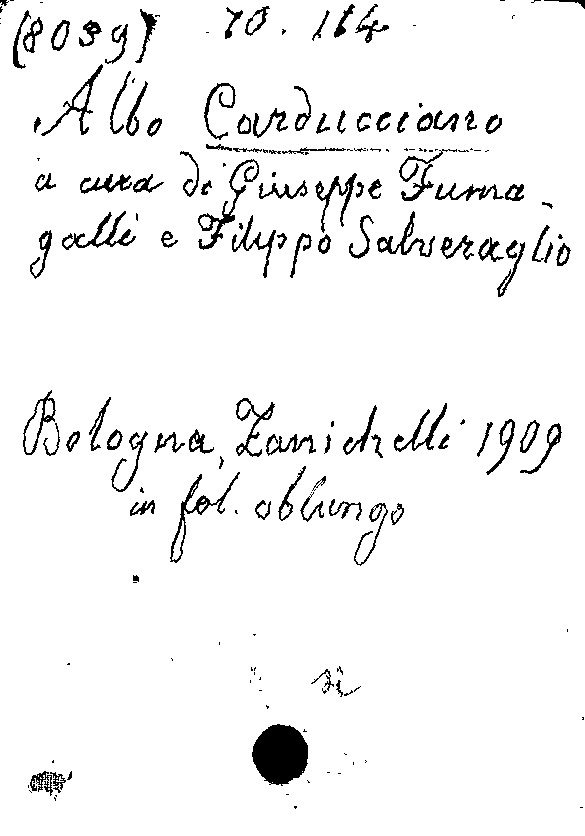 (8039) 70. 114
Albo Carducciano
a cura di Giuseppe Fuma-
galli e Filippo Salveraglio
Bologna, Zanichelli 1909
in fol. oblungo
si